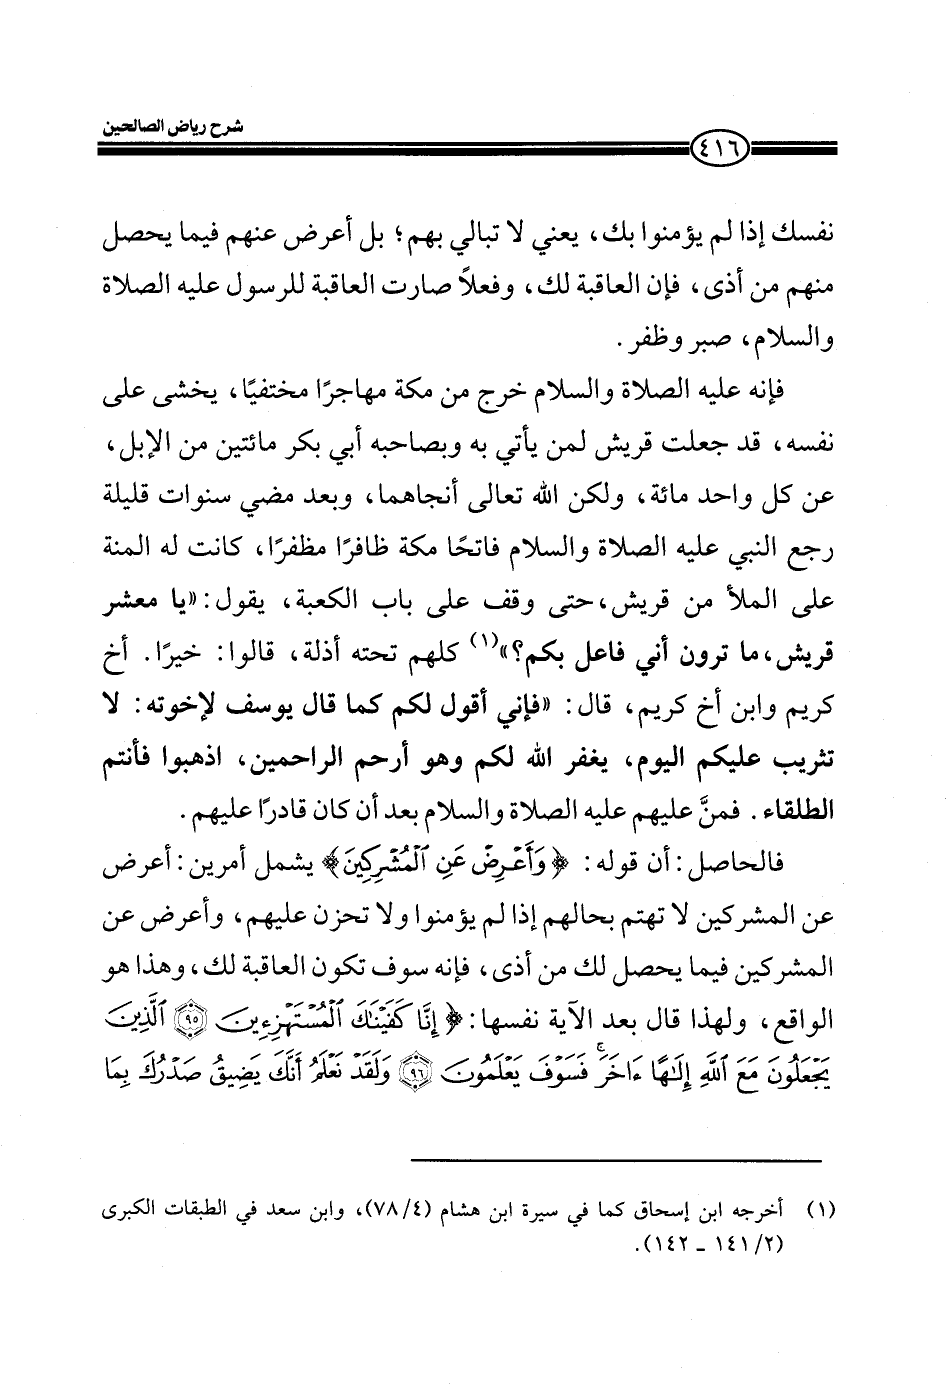 شرح رياض الصالحين
٤١٦
نفسك إذا لم يؤمنوا بك، يعني لا تبالي بهم؛ بل أعرض عنهم فيما يحصل
منهم من أذى، فإن العاقبة لك، وفعلاً صارت العاقبة للرسول عليه الصلاة
والسلام، صبر وظفر.
فإنه عليه الصلاة والسلام خرج من مكة مهاجرًا مختفيًا، يخشى على
نفسه، قد جعلت قريش لمن يأتي به وبصاحبه أبي بكر مائتين من الإبل،
عن كل واحد مائة، ولكن الله تعالى أنجاهما، وبعد مضي سنوات قليلة
رجع النبي عليه الصلاة والسلام فاتحًا مكة ظافرًا مظفرًا، كانت له المنة
على الملأ من قريش، حتى وقف على باب الكعبة، يقول: «يا معشر
قريش، ما ترون أني فاعل بكم؟»(١) كلهم تحته أذلة، قالوا: خيرًا. أخ
كريم وابن أخ كريم، قال: «فإني أقول لكم كما قال يوسف لإخوته: لا
تثريب عليكم اليوم، يغفر الله لكم وهو أرحم الراحمين، اذهبوا فأنتم
الطلقاء. فمنَّ عليهم عليه الصلاة والسلام بعد أن كان قادرًا عليهم.
فالحاصل: أن قوله: ﴿وَأَعْرِضْ عَنِ الْمُشْرِكِينَ﴾ يشمل أمرين: أعرض
عن المشركين لا تهتم بحالهم إذا لم يؤمنوا ولا تحزن عليهم، وأعرض عن
المشركين فيما يحصل لك من أذى، فإنه سوف تكون العاقبة لك، وهذا هو
الواقع، ولهذا قال بعد الآية نفسها: ﴿إِنَّا كَفَيْنَاكَ الْمُسْتَهْزِءِينَ ٩٥ الَّذِينَ
يَجْعَلُونَ مَعَ اللَّهِ إِلَٰهًا ءَاخَرَ ۚ فَسَوْفَ يَعْلَمُونَ ٩٦ وَلَقَدْ نَعْلَمُ أَنَّكَ يَضِيقُ صَدْرُكَ بِمَا
(١) أخرجه ابن إسحاق كما في سيرة ابن هشام (٧٨/٤)، وابن سعد في الطبقات الكبرى
(١٤١/٢ ـ ١٤٢).